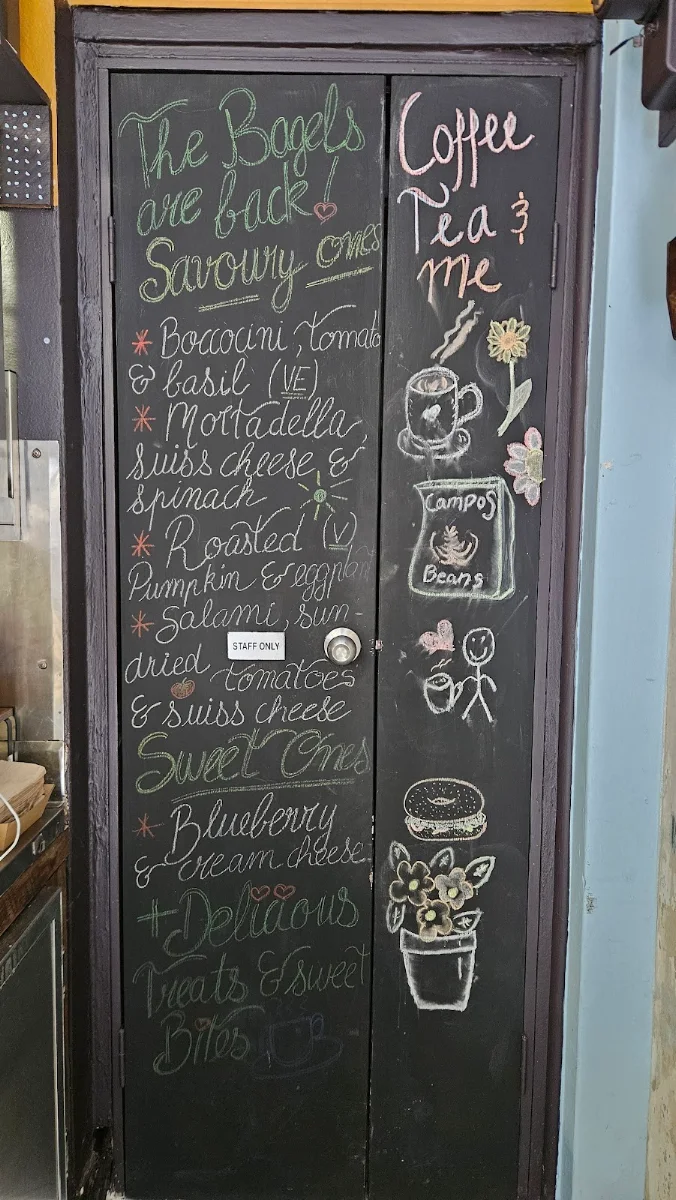 The Bagels
are back!
Savoury ones
* Boccocini, tomato
& basil (VE)
* Mortadella,
suiss cheese &
spinach
* Roasted (V)
Pumpkin & eggplant
* Salami, sun
STAFF ONLY
dried tomatoes
& suiss cheese
Sweet Ones
* Blueberry
& cream cheese
+ Delicious
Treats & sweet
Bites
Coffee
Tea &
me
Campos
Beans